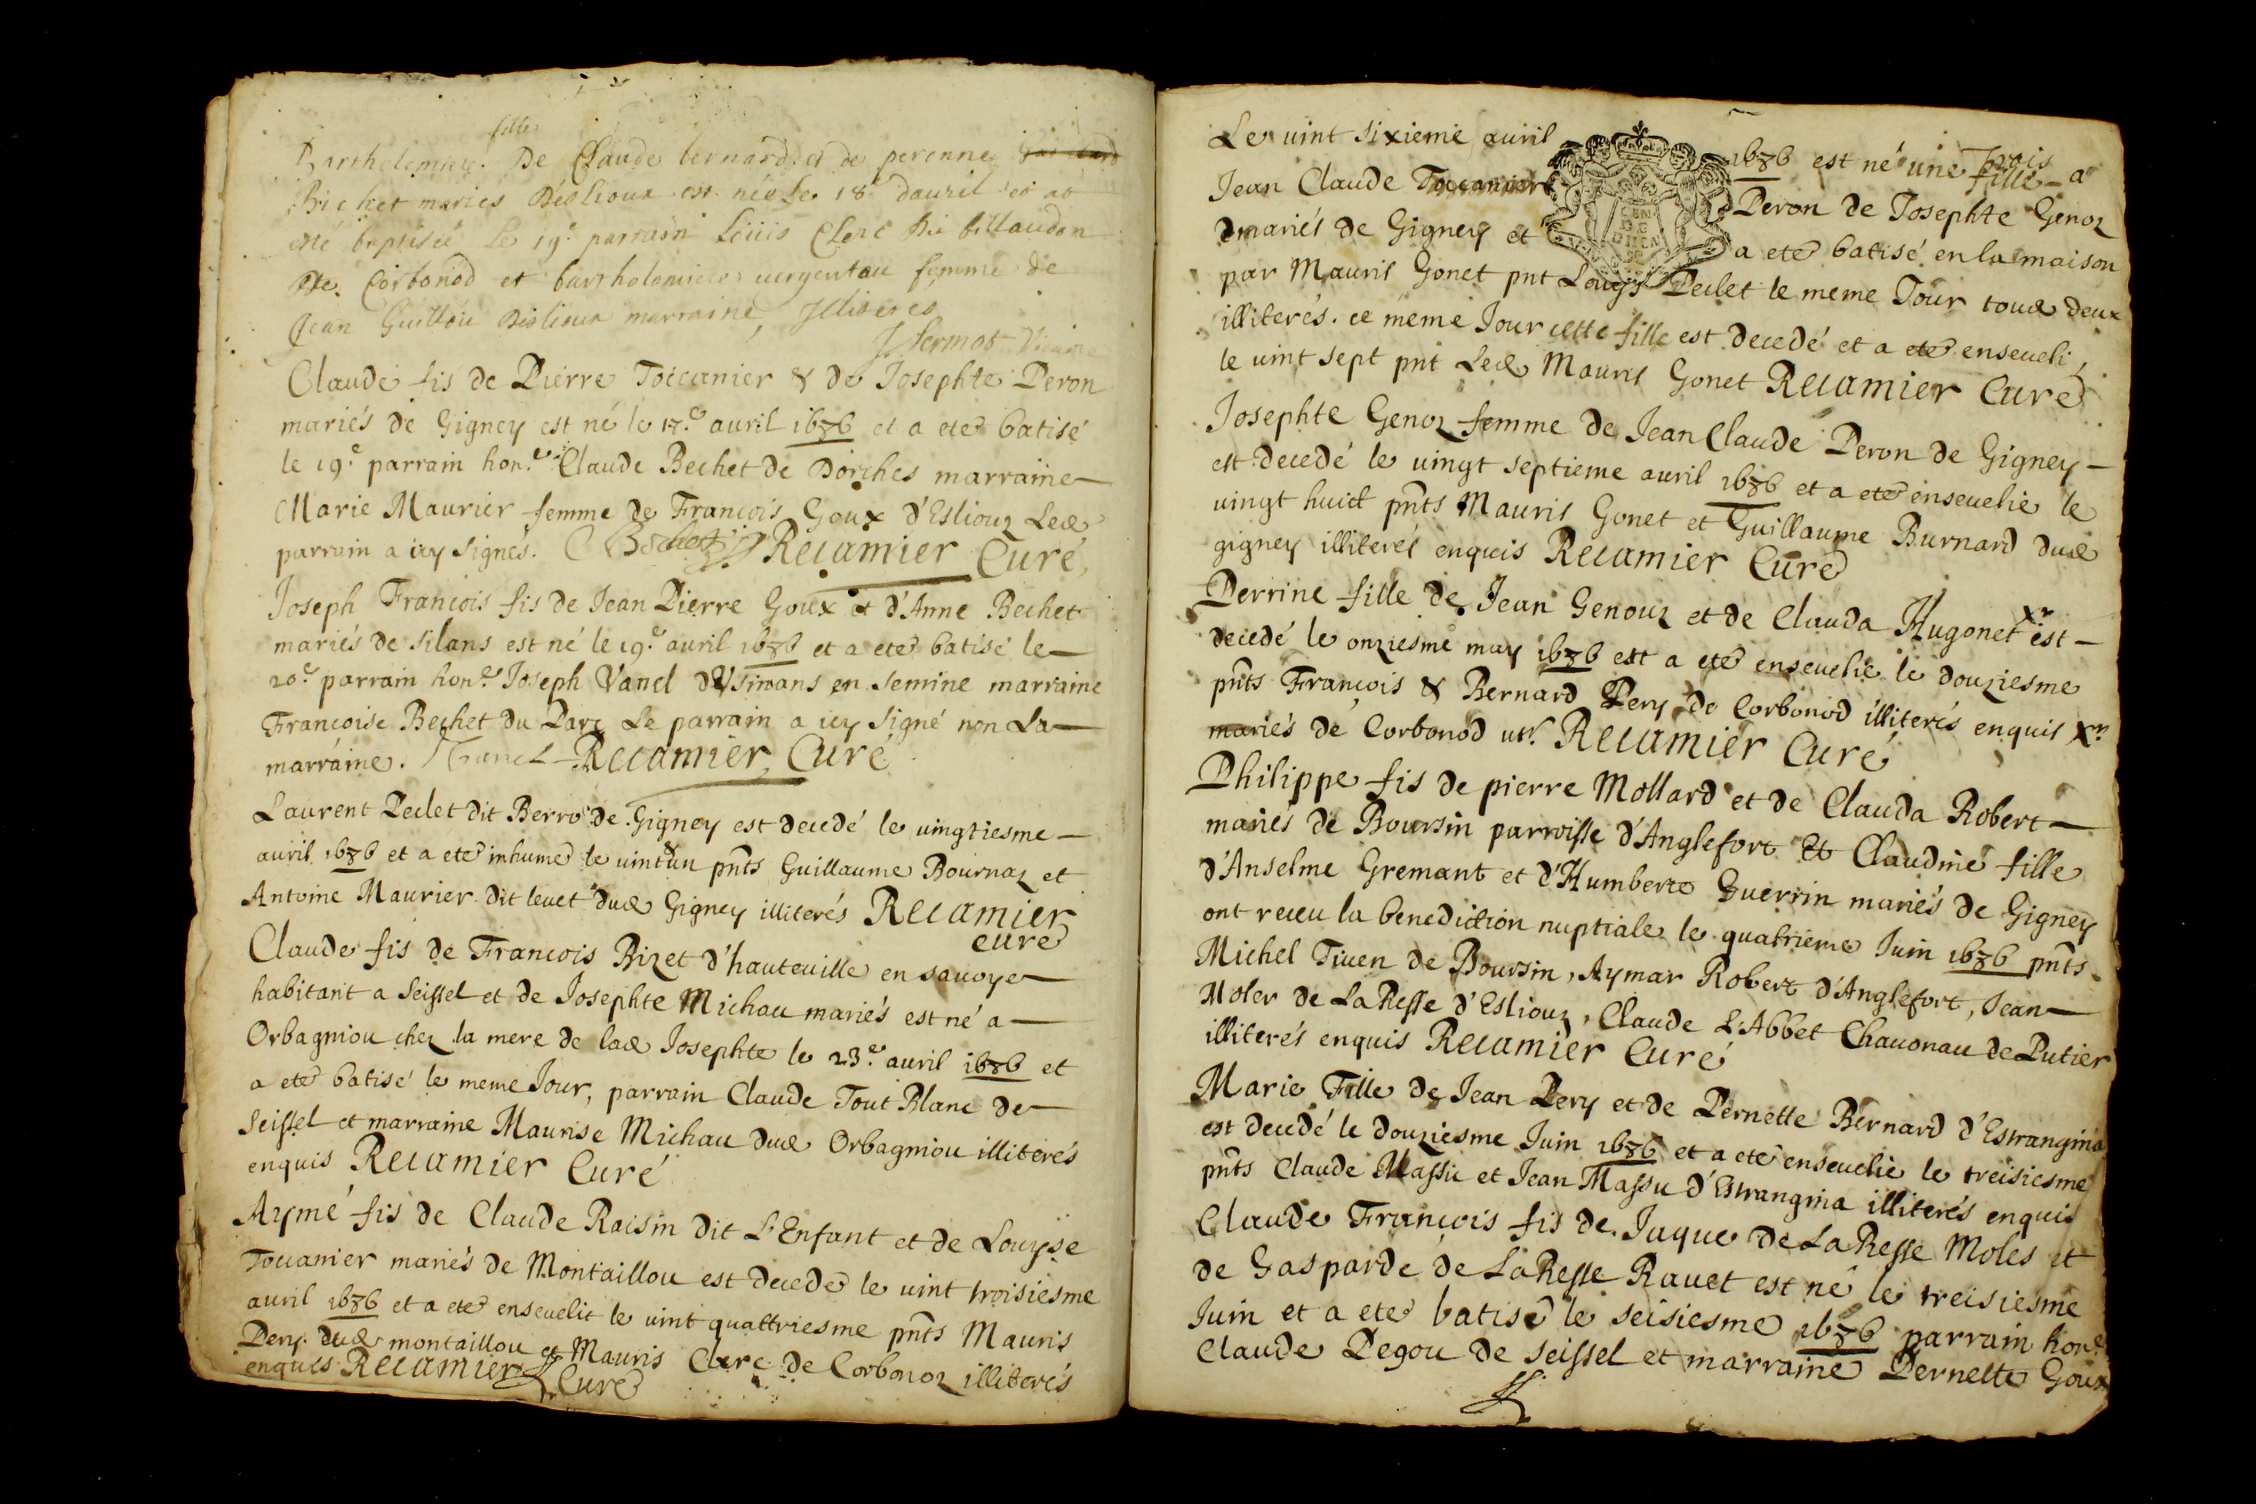 fille
Barthelemiere De Claude bernard et de peronne
Bichet mariés Deslioux est née le 18e dauril et at
esté baptisée Le 19e parrain Loüis Clerc Du billaudon
De Corbonod et bartholomiere femme de
Jean Guillou Deslioux marraine Illiteres
Sermot Vicaire
Claude fis de Pierre Toccanier & de Josephte Peron
mariés de Gigney est né le 17.e auril 1686 et a eté batisé
le 19.e parrain hon.e Claude Bechet de Dorches marraine
Marie Maurier femme de François Goux d'Esliouz Led
parrain a icy signés. C Bechet Recamier Curé
Joseph François fis de Jean Pierre Goux et d'Anne Bechet
mariés de silans est né le 19.e auril 1686 et a eté batisé le
20.e parrain hon.e Joseph Vanel d'Usinans en semine marraine
Françoise Bechet du Parc Le parrain a icy signé non La
marraine. Vanel Recamier Curé
Laurent Peclet dit Berro de Gigney est decedé le uingtiesme
auril 1686 et a eté inhumé le uint&un pñts Guillaume Bournaz et
Antoine Maurier dit leuet dud Gigney illiterés Recamier
curé
Claude fis de François Bizet d'hauteuille en sauoye
habitant a Seissel et de Josephte Michau mariés est né a
Orbagniou chez la mere de lad Josephte le 23.e auril 1686 et
a eté batisé le meme Jour, parrain Claude Tout Blanc de
Seissel et marraine Maurise Michau dud Orbagniou illiterés
enquis Recamier Curé
Aymé fis de Claude Raisin dit L'Enfant et de Louyse
Toccanier mariés de Montaillou est decedé le uint troisiesme
auril 1686 et a eté enseuelit le uint quattriesme pñts Mauris
Pery dud montaillou et Mauris Clerc de Corbonoz illiterés
enquis Recamier Curé
Le uint sixieme auril 1686 est né une fille a
Jean Claude Toccanier Peron de Josephte Genoz
mariés de Gigney et a eté batisé en la maison
par Mauris Gonet pnt Louys Peclet le meme Jour tous deux
illiterés. ce meme Jour cette fille est decedé et a eté enseueli
le uint sept pnt Led Mauris Gonet Recamier Curé
Josephte Genoz femme de Jean Claude Peron de Gigney
est decedé le uingt septieme auril 1686 et a eté enseuelie le
uingt huict pñts Mauris Gonet et Guillaume Burnard dud
gigney illiterés enquis Recamier Curé
Perrine fille de Jean Genouz et de Clauda Hugonet est
decedé le onziesme may 1686 est a eté enseuelie le douziesme
pñts François & Bernard Pery de Corbonod illiterés enquis
mariés de Corbonod Recamier Curé
Philippe fis de pierre Mollard et de Clauda Robert
mariés de Boursin parroisse d'Anglefort Et Claudine fille
d'Anselme Gremant et d'Humberte Guerrin mariés de Gigney
ont receu la benediction nuptiale le quatrieme Juin 1686 pñts
Michel Tiuen de Boursin, Aymar Robert d'Anglefort, Jean
Moler de La Resse d'Esliouz, Claude L'Abbet Chauonau de Putier
illiterés enquis Recamier Curé
Marie Fille de Jean Pery et de Pernette Bernard d'Estrangina
est decedé le douziesme Juin 1686 et a eté enseuelie le treisiesme
pñts Claude Massu et Jean Massu d'Estrangina illiterés enquis
Claude François fis de Jaque de La Resse Moles et
de Gasparde de La Resse Rauet est né le treisiesme
Juin et a eté batisé le seisiesme 1686 parrain hon.e
Claude Degou de Seissel et marraine Pernette Goux